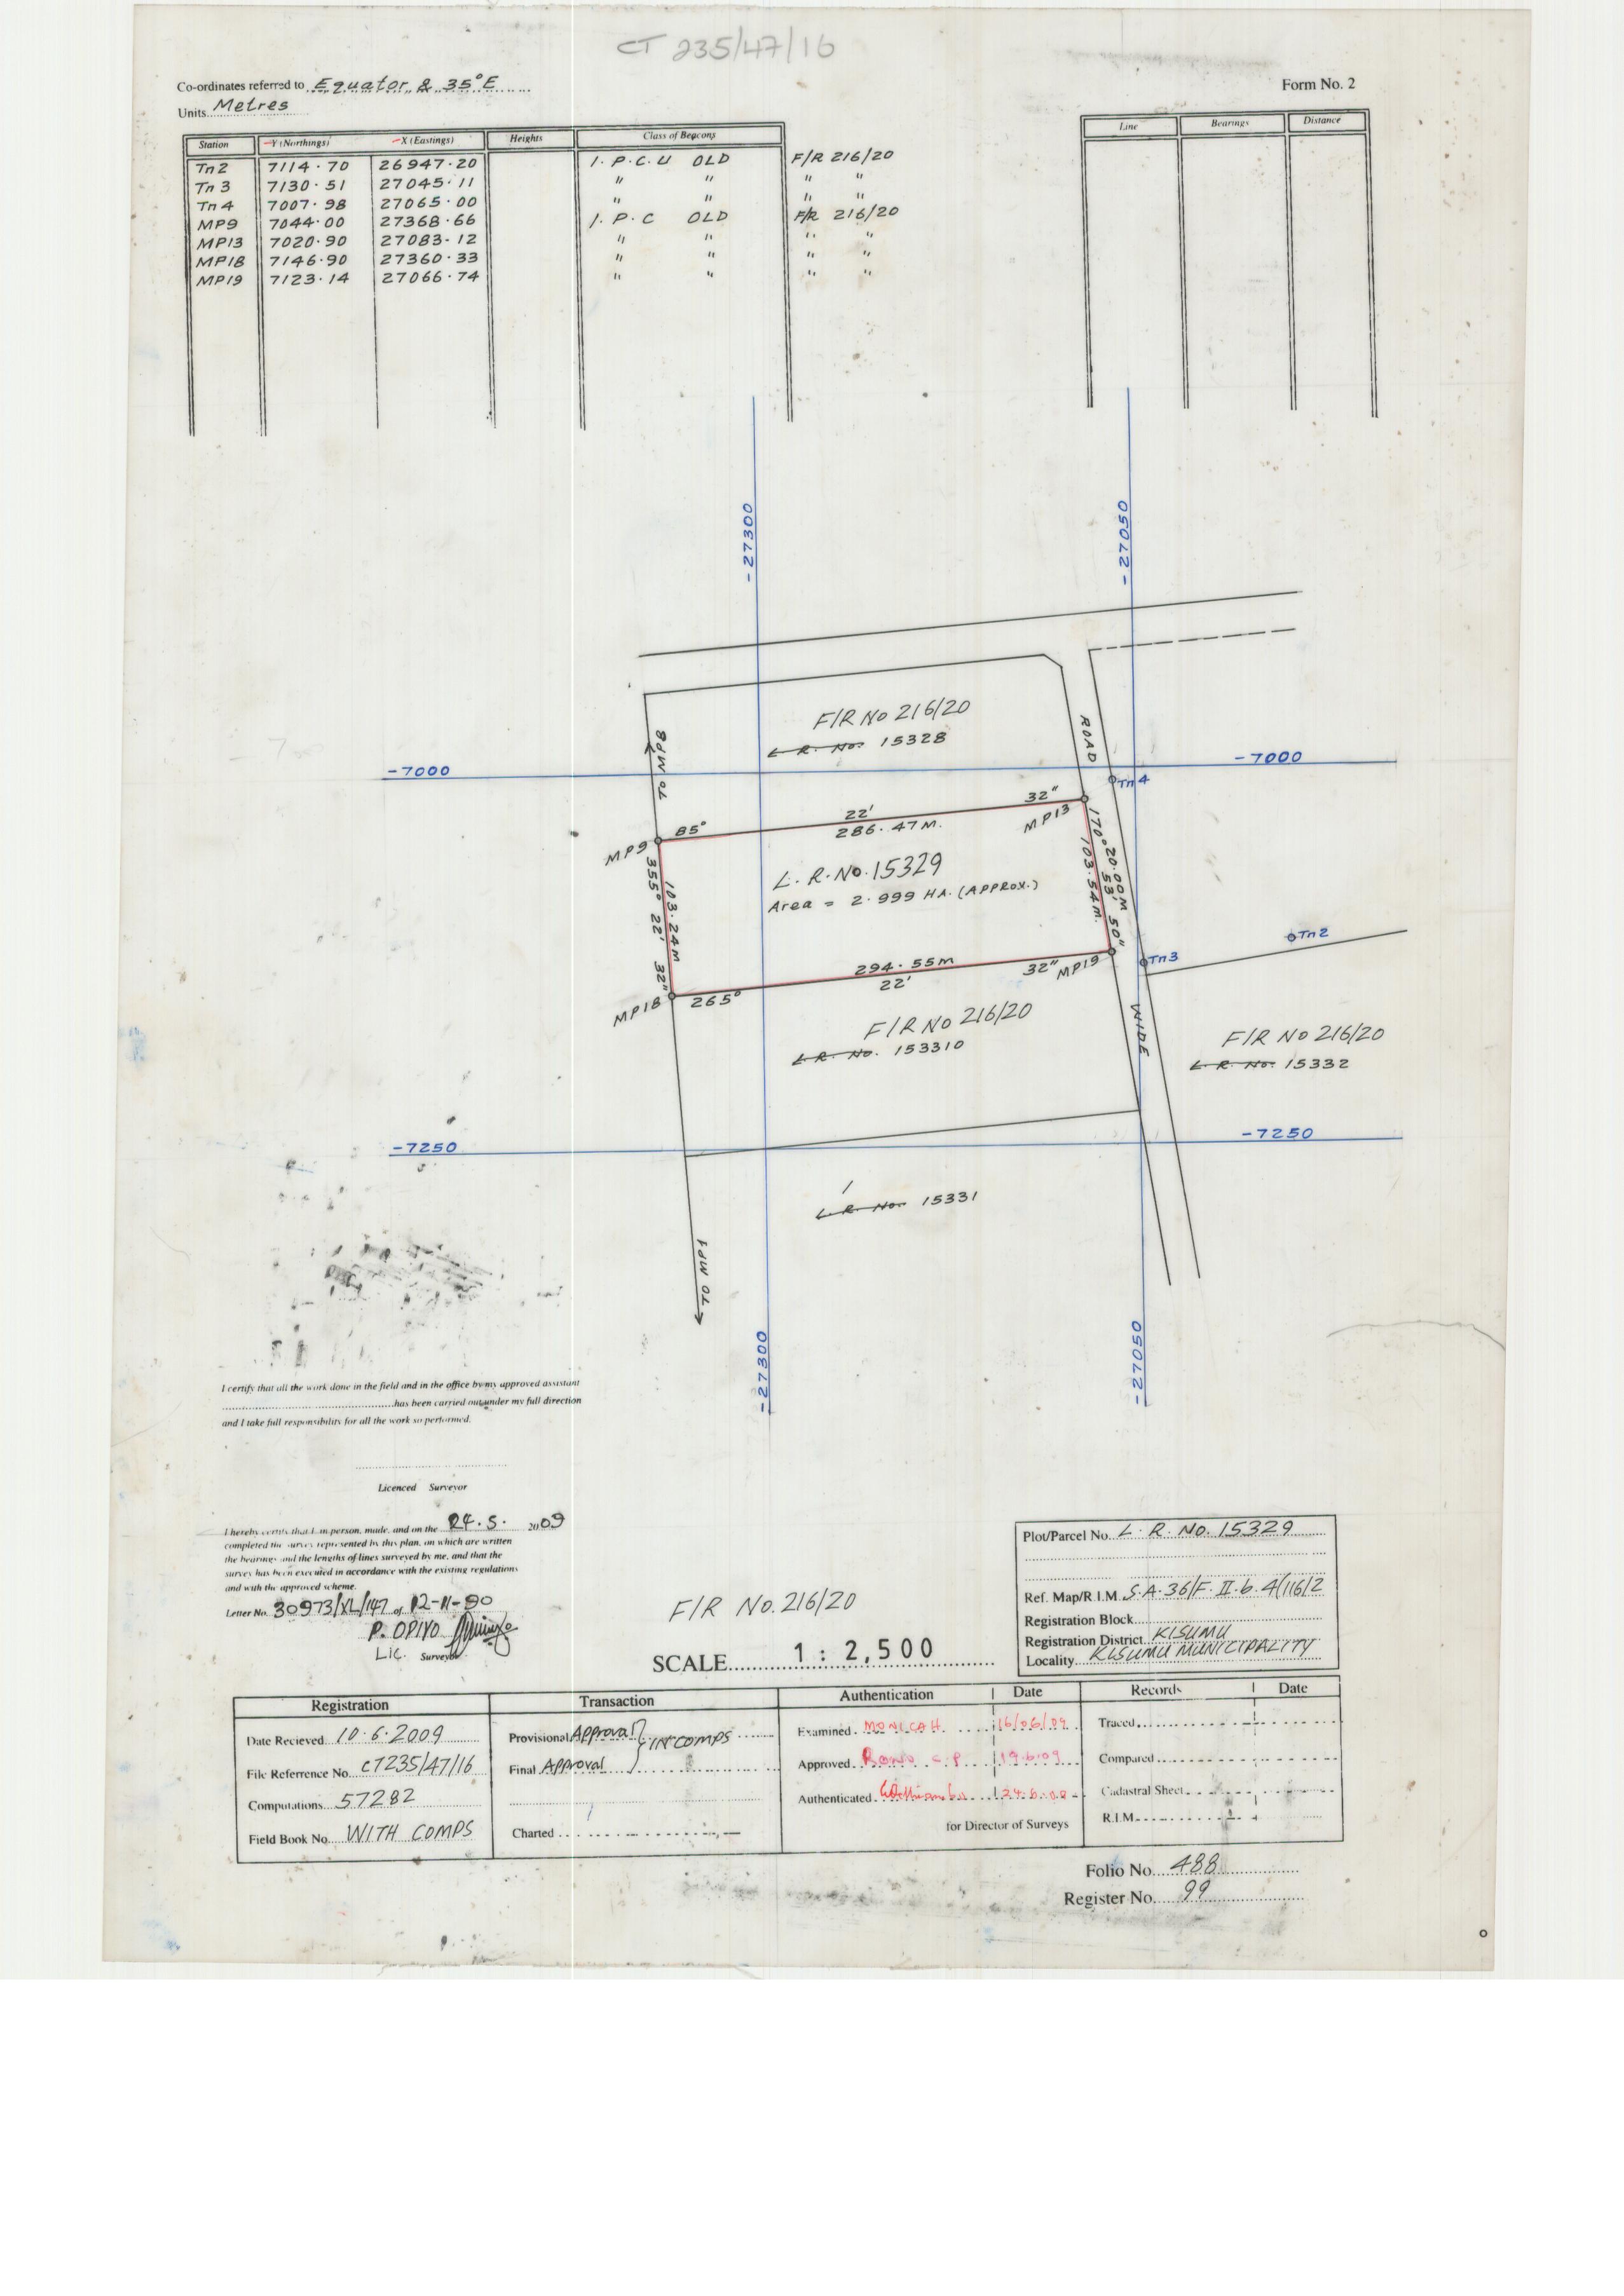 CT 235/47/16
Co-ordinates referred to Equator & 35°E
Form No. 2
Units Metres
Station -Y (Northings) -X (Eastings) Heights Class of Beacons
Line Bearings Distance
Tn2 7114.70 26947.20 I.P.C.U OLD F/R 216/20
Tn3 7130.51 27045.11 " " " "
Tn4 7007.98 27065.00 " " " "
MP9 7044.00 27368.66 I.P.C OLD F/R 216/20
MP13 7020.90 27083.12 " " " "
MP18 7146.90 27360.33 " " " "
MP19 7123.14 27066.74 " " " "
-27300
-27050
F/R No 216/20
L. R. No. 15328
ROAD
TO MP8
-7000
-7000
Tn4
85° 22' 32"
286.47M.
MP9
MP13
L. R. No. 15329
Area = 2.999 HA. (APPROX.)
355° 22' 32"
103.24M
170° 53' 50"
103.54M.
20.00M
Tn2
Tn3
294.55M
265° 22' 32"
MP18
MP19
WIDE
F/R No 216/20
L. R. No. 153310
F/R No 216/20
L. R. No. 15332
-7250
-7250
L. R. No. 15331
TO MP1
-27300
-27050
I certify that all the work done in the field and in the office by my approved assistant
has been carried out under my full direction
and I take full responsibility for all the work so performed.
Licenced Surveyor
I hereby certify that I, in person, made, and on the 24.5. 2009
completed the survey represented by this plan, on which are written
the bearings and the lengths of lines surveyed by me, and that the
survey has been executed in accordance with the existing regulations
and with the approved scheme.
Letter No. 30973/XL/147 of 12-11-90
P. OPIYO
Lic. Surveyor
F/R No. 216/20
SCALE 1 : 2,500
Plot/Parcel No. L. R. No. 15329
Ref. Map/R.I.M. S.A.36/F.II.b.4/116/2
Registration Block
Registration District KISUMU
Locality KISUMU MUNICIPALITY
Registration Transaction Authentication Date Records Date
Date Recieved 10.6.2009
File Referrence No. CT235/47/16
Computations 57282
Field Book No. WITH COMPS
Provisional Approval } IN COMPS
Final Approval
Charted
Examined MONICAH 16/06/09
Approved 19.6.09
Authenticated
for Director of Surveys
Traced
Compared
Cadastral Sheet
R.I.M.
Folio No. 488
Register No. 99